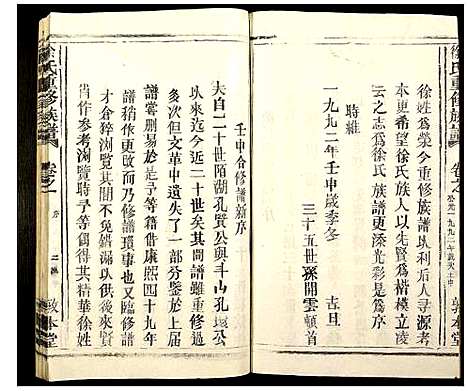 徐氏重修族譜
卷之一
公元一九九二年歲次壬申
敦本堂
徐姓為榮今重修族譜以利后人寻源者
本更希望徐氏族人以先賢為楷模立陵
云之志為徐氏族譜更添光彩是為序
時維
一九九二年壬申歲季冬 吉旦
三十五世孫開雲頓首
壬申合修譜新序
夫自二十世陌湖孔賢公與斗山孔堤公
以來迄今近二十世矣其間譜雖重修过
多次但文革中遺失了一部分鉴於上届
譜嘗删易於是予等籍借康熙四十九年
譜稍作更改而乃修譜瑣事也又臨修譜
才倉猝浏覽其間不免錯漏以供後來賢
肖作参考浏覽時予等偶得其精华徐姓
徐氏重修族譜
卷之一
序
敦本堂